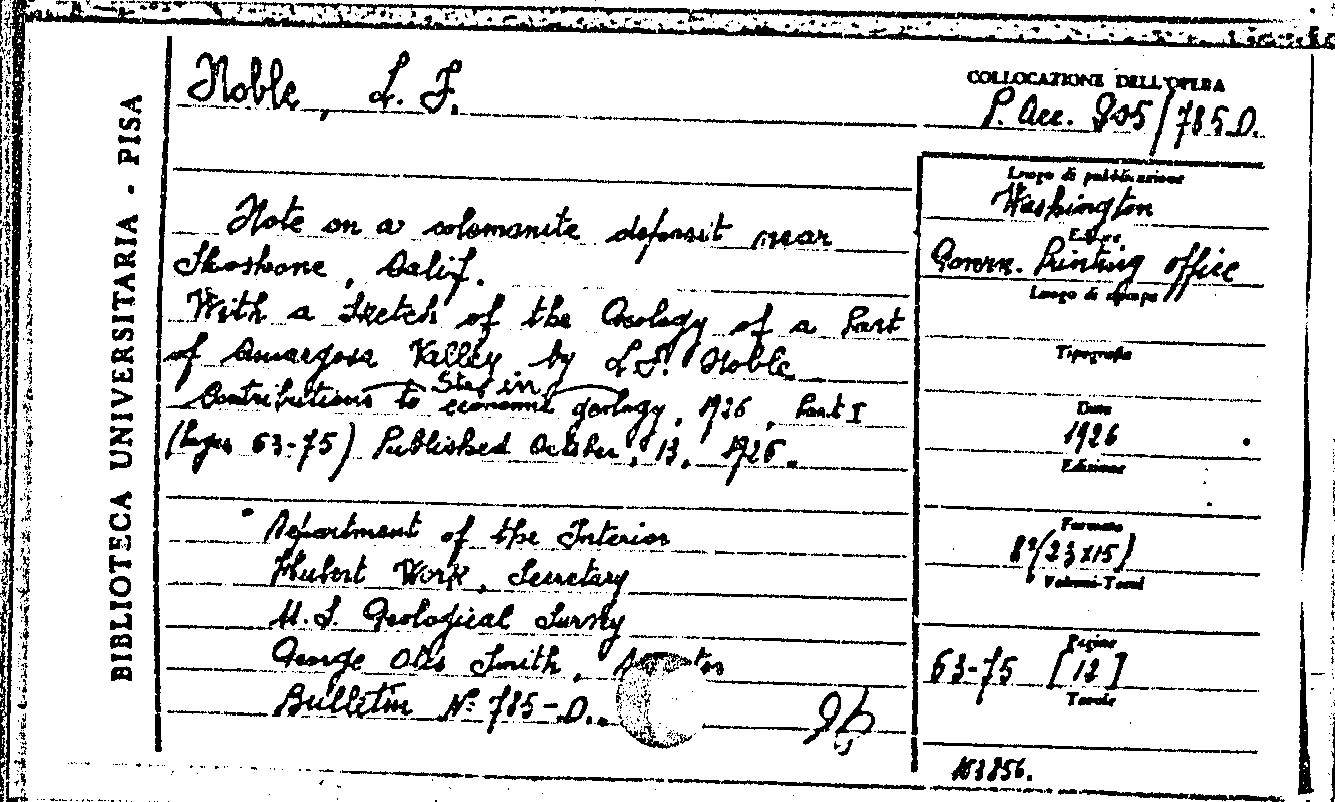 BIBLIOTECA UNIVERSITARIA - PISA
Noble, L. F.
COLLOCAZIONE DELL'OPERA
P. Acc. 905/785 D.
Note on a colemanite deposit near
Shoshone, Calif.
With a Sketch of the Geology of a Part
of Amargosa Valley by L.F. Noble
Contributions to economic geology, 1926, Part I
(Pages 63-75) Published October, 13, 1926.
Department of the Interior
Hubert Work, Secretary
U.S. Geological Survey
George Otis Smith,
Bulletin Nº 785-D.
Luogo di pubblicazione
Washington
Govern. Printing office
Luogo di stampa
Tipografia
Data
1926
Edizione
Formato
8º(23x15)
Volumi-Tomi
Pagine
63-75 [12]
Tavole